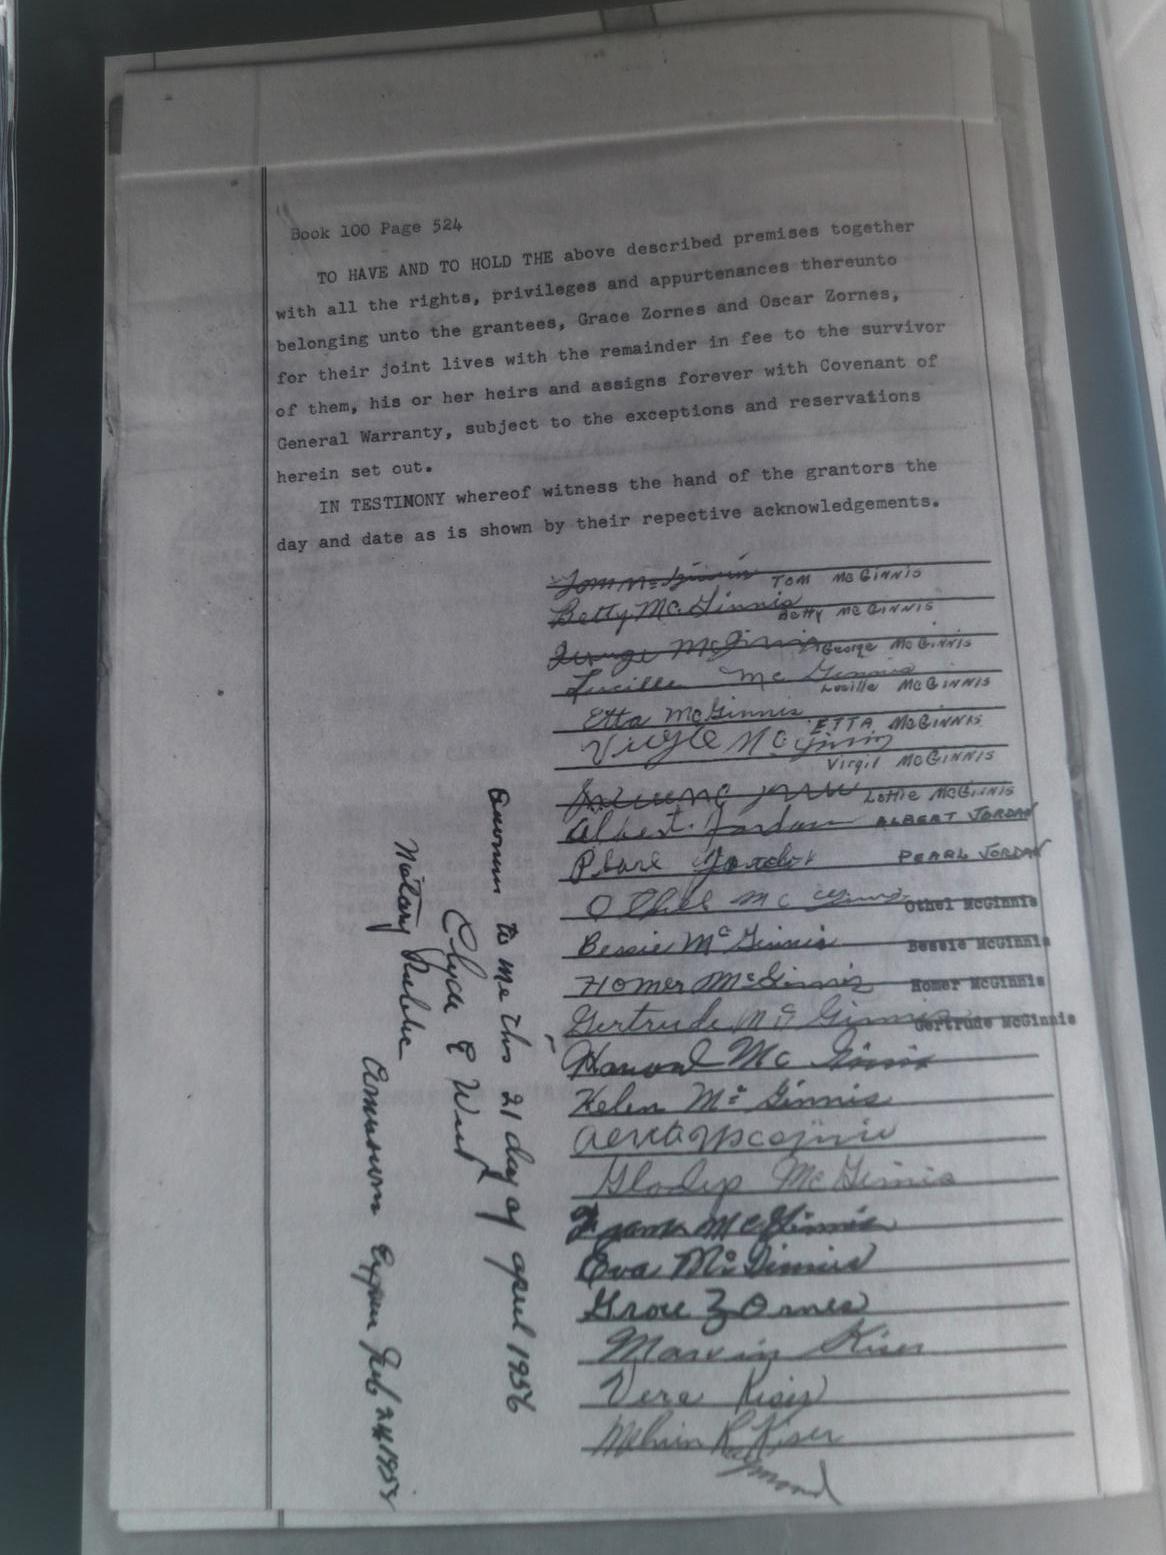 Book 100 Page 524
TO HAVE AND TO HOLD THE above described premises together
with all the rights, privileges and appurtenances thereunto
belonging unto the grantees, Grace Zornes and Oscar Zornes,
for their joint lives with the remainder in fee to the survivor
of them, his or her heirs and assigns forever with Covenant of
General Warranty, subject to the exceptions and reservations
herein set out.
IN TESTIMONY whereof witness the hand of the grantors the
day and date as is shown by their repective acknowledgements.
Tom McGinnis TOM McGINNIS
Betty McGinnis Betty McGINNIS
George McGinnis George McGINNIS
Lucille McGinnis Lucille McGINNIS
Etta McGinnis ETTA McGINNIS
McGinnis Virgil McGINNIS
Lottie McGINNIS
Albert Jordan ALBERT JORDAN
Pearl Jordan PEARL JORDAN
McGinnis Othel McGinnis
Bessie McGinnis Bessie McGinnis
Homer McGinnis Homer McGinnis
Gertrude McGinnis Gertrude McGinnis
McGinnis
Helen McGinnis
Gladys McGinnis
McGinnis
Eva McGinnis
Zornes
Marvin Kiser
Vera Kiser
Melvin R Kiser
to me this 21 day of april 1956
Clyde E
Notary Public
Feb 24